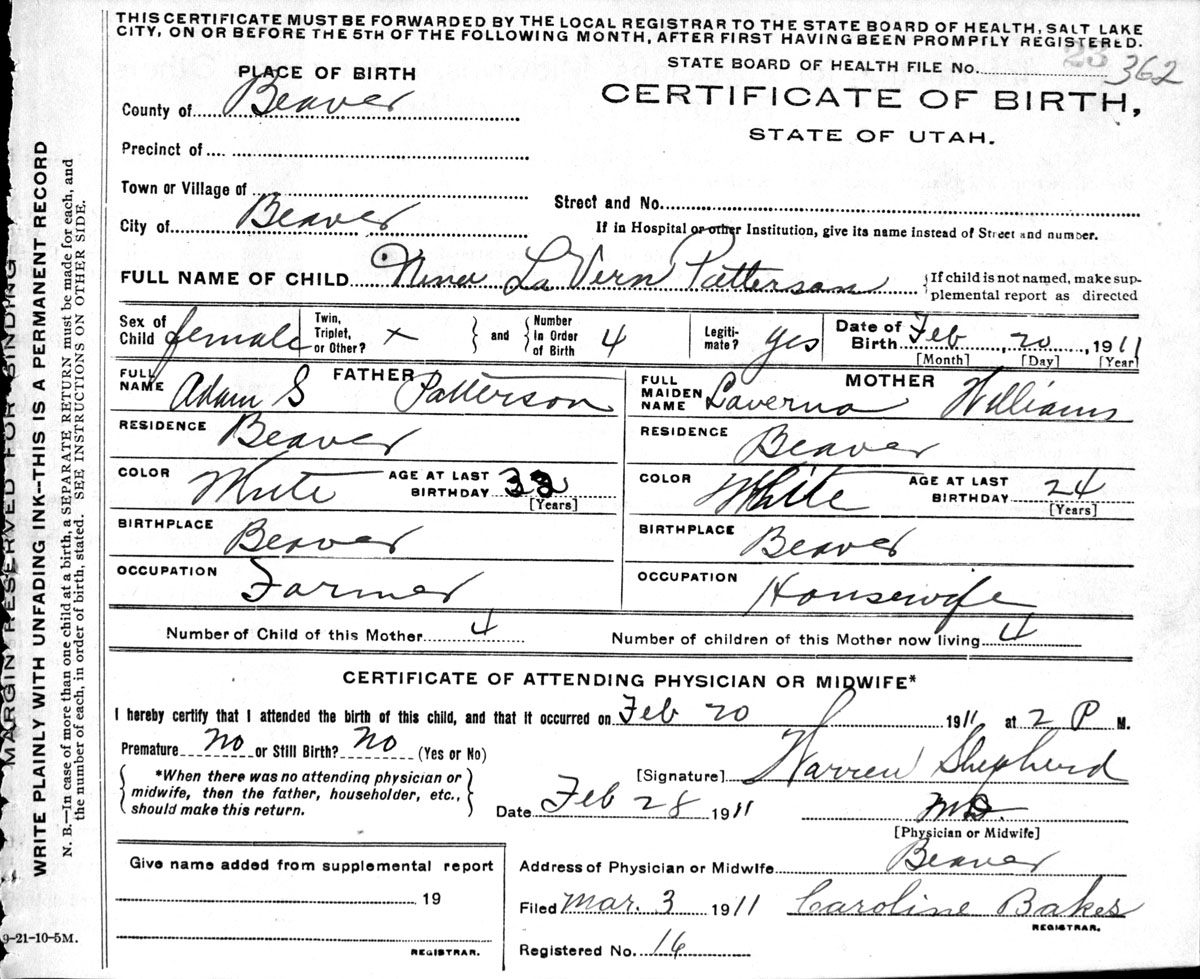 THIS CERTIFICATE MUST BE FORWARDED BY THE LOCAL REGISTRAR TO THE STATE BOARD OF HEALTH, SALT LAKE
CITY, ON OR BEFORE THE 5TH OF THE FOLLOWING MONTH, AFTER FIRST HAVING BEEN PROMPTLY REGISTERED.
STATE BOARD OF HEALTH FILE No. 23 362
PLACE OF BIRTH
CERTIFICATE OF BIRTH,
STATE OF UTAH.
County of Beaver
Precinct of
Town or Village of
Street and No.
City of Beaver
If in Hospital or other Institution, give its name instead of Street and number.
FULL NAME OF CHILD Nina La Vern Patterson {If child is not named, make sup-
plemental report as directed
Sex of Child female Twin, Triplet, or Other? x } and { Number in Order of Birth 4 Legiti-mate? yes Date of Birth Feb, 20, 1911
[Month] [Day] [Year]
FATHER
FULL NAME Adam S Patterson
RESIDENCE Beaver
COLOR White AGE AT LAST BIRTHDAY 33
[Years]
BIRTHPLACE Beaver
OCCUPATION Farmer
MOTHER
FULL MAIDEN NAME Laverna Williams
RESIDENCE Beaver
COLOR White AGE AT LAST BIRTHDAY 24
[Years]
BIRTHPLACE Beaver
OCCUPATION Housewife
Number of Child of this Mother 4 Number of children of this Mother now living 4
CERTIFICATE OF ATTENDING PHYSICIAN OR MIDWIFE*
I hereby certify that I attended the birth of this child, and that it occurred on Feb 20 1911 at 2 P M.
Premature No or Still Birth? No (Yes or No)
*When there was no attending physician or
midwife, then the father, householder, etc.,
should make this return.
[Signature] Warren Shepherd
Date Feb 28 1911 M.D.
[Physician or Midwife]
Give name added from supplemental report
19
REGISTRAR.
Address of Physician or Midwife Beaver
Filed Mar. 3 1911 Caroline Bakes
REGISTRAR.
Registered No. 16
9-21-10-5M.
MARGIN RESERVED FOR BINDING
WRITE PLAINLY WITH UNFADING INK—THIS IS A PERMANENT RECORD
N. B.—In case of more than one child at a birth, a SEPARATE RETURN must be made for each, and
the number of each, in order of birth, stated. SEE INSTRUCTIONS ON OTHER SIDE.